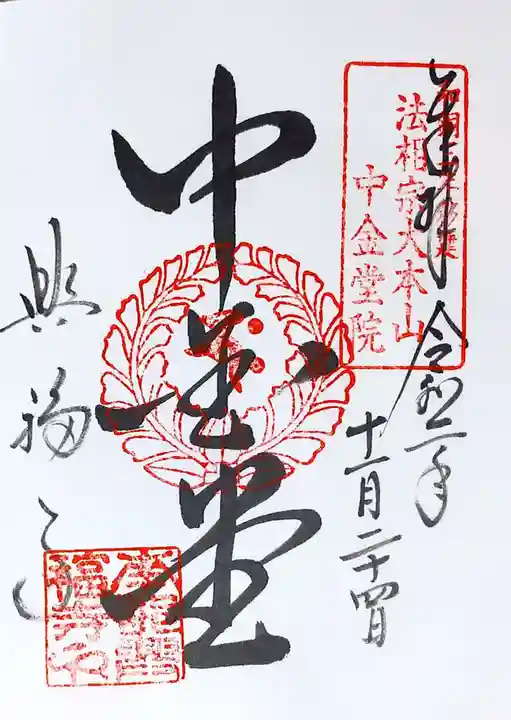 奉拝 令和二年
十一月二十四日
法相宗大本山
中金堂院
中金堂
興福寺